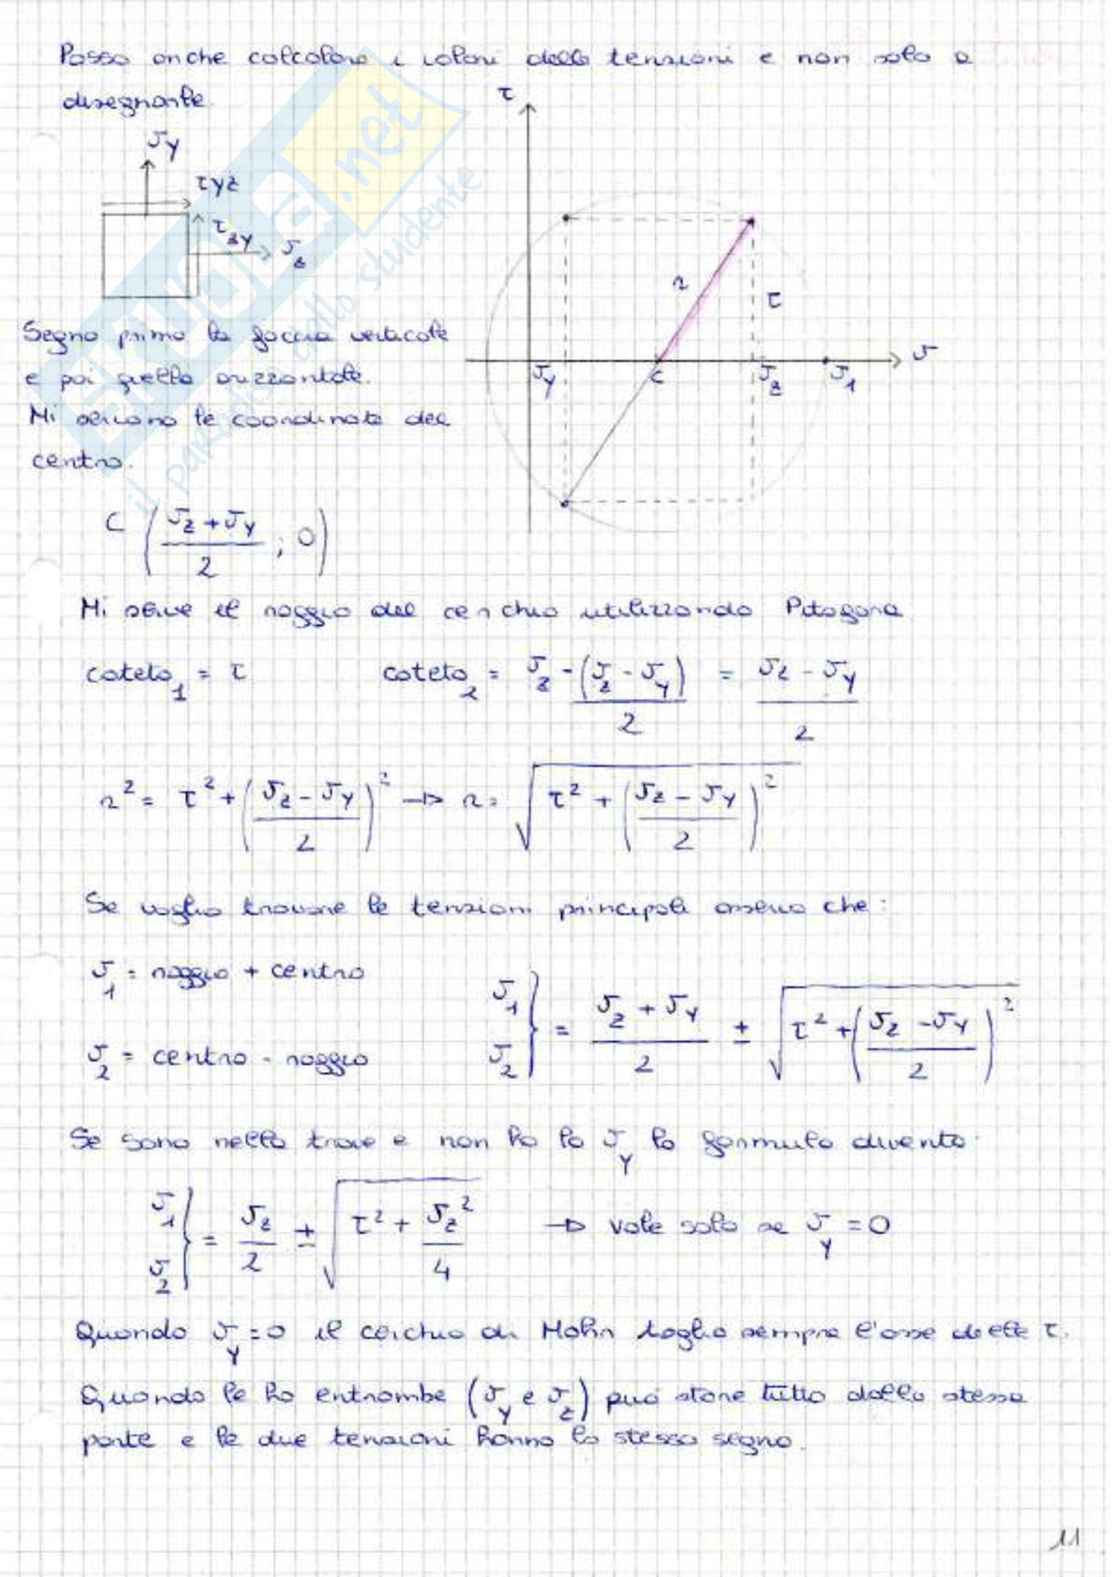 Posso anche calcolare i valori delle tensioni e non solo a
disegnarle.
τ
σy
τyz
τzy
σz
r
τ
σy
C
σz
σ1
σ
Segno prima la faccia verticale
e poi quella orizzontale.
Mi servono le coordinate del
centro.
C ( (σz + σy)/2 ; 0 )
Mi serve il raggio del cerchio utilizzando Pitagora
cateto1 = τ cateto2 = σz - (σz - σy)/2 = (σz - σy)/2
r² = τ² + ((σz - σy)/2)² → r = √(τ² + ((σz - σy)/2)²)
Se voglio trovare le tensioni principali osservo che:
σ1 = raggio + centro
σ2 = centro - raggio
σ1 σ2 } = (σz + σy)/2 ± √(τ² + ((σz - σy)/2)²)
Se sono nella trave e non ho la σy la formula diventa:
σ1 σ2 } = σz/2 ± √(τ² + σz²/4) → vale solo se σy = 0
Quando σy = 0 il cerchio di Mohr taglia sempre l'asse delle τ.
Quando le ho entrambe (σy e σz) può stare tutto dalla stessa
parte e le due tensioni hanno lo stesso segno.
11
il paradiso dello studente